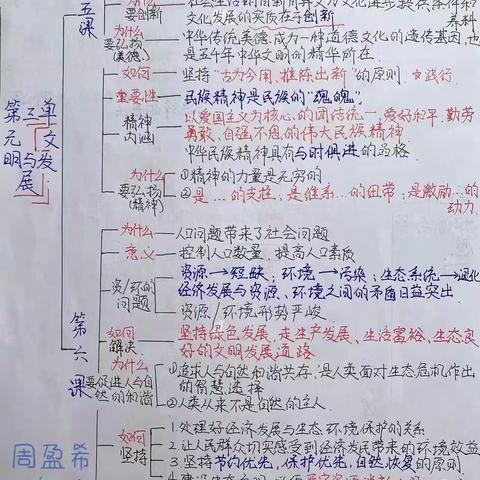 五课
第三单元 文明与发展
为什么要创新
社会生活的创新
文化发展的实质在于创新
为什么要弘扬(美德)
中华传统美德,成为一种道德文化的遗传基因,也
是五千年中华文明的精华所在.
如何
坚持"古为今用、推陈出新"的原则. 践行
重要性
民族精神是民族的"魂魄".
精神内涵
以爱国主义为核心的团结统一、爱好和平、勤劳
勇敢、自强不息的伟大民族精神
中华民族精神具有与时俱进的品格
为什么要弘扬(精神)
①精神的力量是无穷的
②是…的支柱,是维系…的纽带;是激励…的
动力.
第六课
为什么
人口问题带来了社会问题
意义
控制人口数量,提高人口素质
资/环的问题
资源→短缺;环境→污染;生态系统→退化
经济发展与资源、环境之间的矛盾日益突出.
资源/环境形势严峻
如何解决.
坚持绿色发展,走生产发展、生活富裕、生态良
好的文明发展道路
为什么要促进人与自然的和谐
①追求人与自然和谐共存,是人类面对生态危机作出
的智慧选择
②人类从来不是自然的主人
如何坚持
1.处理好经济发展与生态环境保护的关系
2.让人民群众切实感受到经济发民带来的环境效益
3.坚持节约优先,保护优先,自然恢复的原则
周盈希